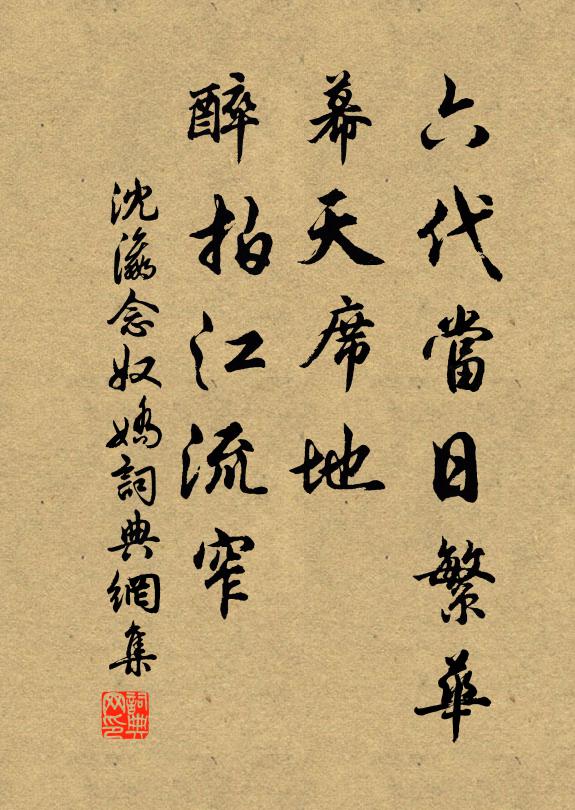 六代當日繁華
幕天席地
醉拍江流窄
沈瀛念奴嬌詞典網集
詞典网印